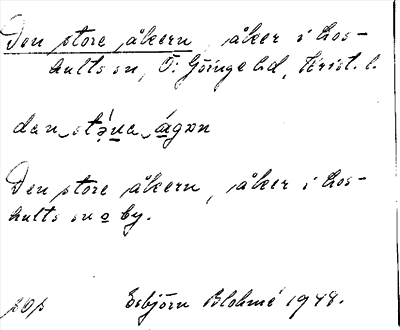 Den store åkern, åker i Los-
hults sn, Ö. Göinge hd, Krist. l.
dan stǝ́ra ágɒn
Den store åkern, åker i Los-
hults sn o by.
Esbjörn Blohmé 1948.